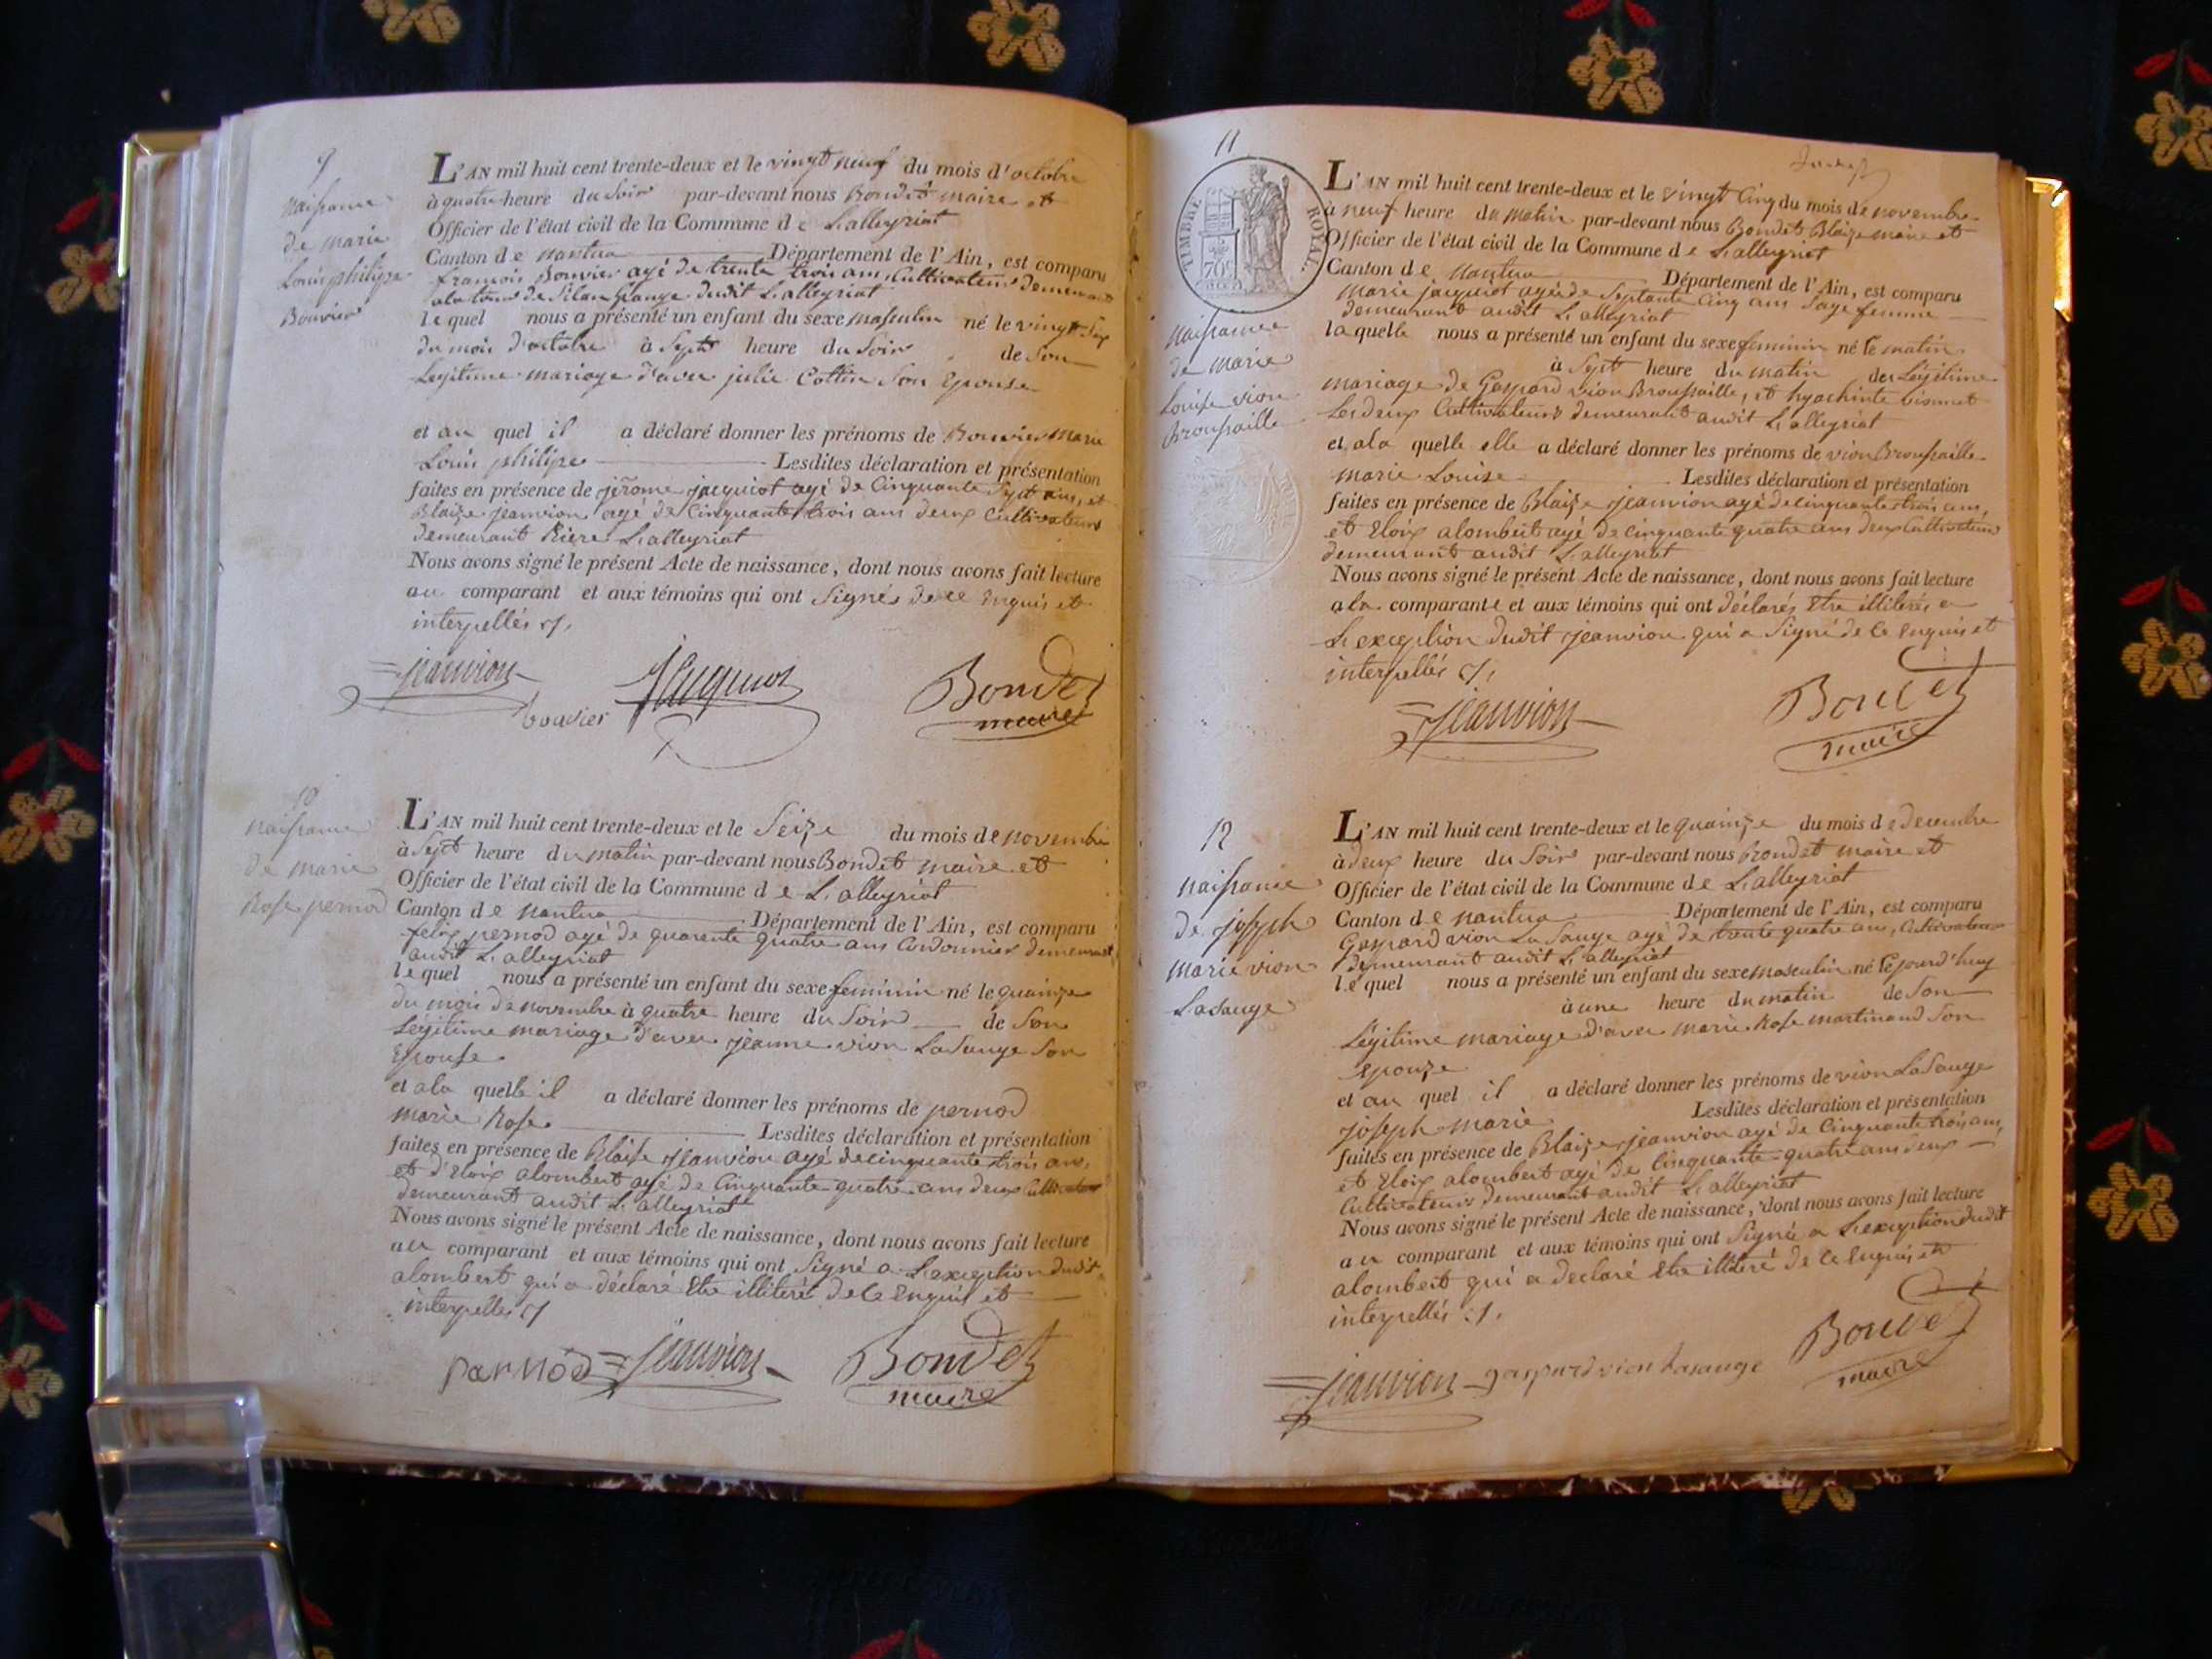 9
naissance
de marie
Louis philipe
Bouvier
L'AN mil huit cent trente-deux et le vingt neuf du mois d'octobre
à quatre heure du soir par-devant nous Bondet maire et
Officier de l'état civil de la Commune de L'alleyriat
Canton de nantua Département de l'Ain, est comparu
francois Bouvier agé de trente trois ans, Cultivateur demeurant
a la tour de Silan Grange dudit L'alleyriat
lequel nous a présenté un enfant du sexe masculin né le vingt
du mois d'octobre à Sept heure du Soir de Son
Légitime mariage d'avec julie Cottin Son Epouse
et au quel il a déclaré donner les prénoms de Bouvier Marie
Louis philipe Lesdites déclaration et présentation
faites en présence de jérome jacquiot agé de Cinquante Sept ans, et
Blaize jeanvion agé de Cinquante trois ans deux Cultivateurs
demeurant Riere L'alleyriat
Nous avons signé le présent Acte de naissance, dont nous avons fait lecture
au comparant et aux témoins qui ont Signés de ce Enquis et
interpellés
jeanvion
bouvier
Jacquiot
Bondet
maire
10
naissance
de marie
Rose pernod
L'AN mil huit cent trente-deux et le Seize du mois de novembre
à Sept heure du matin par-devant nous Bondet maire et
Officier de l'état civil de la Commune de L'alleyriat
Canton de nantua Département de l'Ain, est comparu
felix pernod agé de quarente quatre ans Cordonnier demeurant
audit L'alleyriat
lequel nous a présenté un enfant du sexe feminin né le quainze
du mois de novembre à quatre heure du Soir de Son
Légitime mariage d'avec jeanne vion LaSauge Son
Epouse
et a la quelle il a déclaré donner les prénoms de pernod
marie Rose Lesdites déclaration et présentation
faites en présence de Blaise jeanvion agé de cinquante trois ans,
et d'Eloix alombert agé de Cinquante quatre ans deux
demeurant audit L'alleyriat
Nous avons signé le présent Acte de naissance, dont nous avons fait lecture
au comparant et aux témoins qui ont Signé a L'exception dudit
alombert qui a déclaré Etre illiteré de ce Enquis et
interpellés
parnod
jeanvion
Bondet
maire
11
TIMBRE ROYAL
70c
naissance
de marie
Louise vion
Broussaille
L'AN mil huit cent trente-deux et le vingt cinq du mois de novembre
à neuf heure du matin par-devant nous Bondet Blaize maire et
Officier de l'état civil de la Commune de L'alleyriat
Canton de Nantua Département de l'Ain, est comparu
Marie jacquiot agée de Septante Cinq ans Sage femme
demeurant audit L'alleyriat
laquelle nous a présenté un enfant du sexe feminin né le matin
à Sept heure du matin de Légitime
mariage de Gaspard vion Broussaille, et hyachinte
Les deux Cultivateurs demeurant audit L'alleyriat
et a la quelle elle a déclaré donner les prénoms de vion Broussaille
Marie Louise Lesdites déclaration et présentation
faites en présence de Blaize jeanvion agé de cinquante trois ans,
et Eloix alombert agé de cinquante quatre ans deux Cultivateurs
demeurant audit L'alleyriat
Nous avons signé le présent Acte de naissance, dont nous avons fait lecture
a la comparante et aux témoins qui ont déclarés Etre illiterés a
L'exception dudit jeanvion qui a Signé de ce Enquis et
interpellés
jeanvion
Bondet
maire
12
naissance
de joseph
marie vion
Lasauge
L'AN mil huit cent trente-deux et le quainze du mois de decembre
à deux heure du Soir par-devant nous Bondet maire et
Officier de l'état civil de la Commune de L'alleyriat
Canton de nantua Département de l'Ain, est comparu
Gaspard vion La Sauge agé de trente quatre ans, Cultivateur
demeurant audit L'alleyriat
lequel nous a présenté un enfant du sexe masculin né le jourd'huy
à une heure du matin de Son
Légitime mariage d'avec marie Rose martinand Son
Epouze
et au quel il a déclaré donner les prénoms de vion LaSauge
joseph marie Lesdites déclaration et présentation
faites en présence de Blaize jeanvion agé de Cinquante trois ans,
et Eloix alombert agé de Cinquante quatre ans deux
Cultivateurs demeurant audit L'alleyriat
Nous avons signé le présent Acte de naissance, dont nous avons fait lecture
au comparant et aux témoins qui ont Signé a L'exception dudit
alombert qui a declaré Etre illiteré de ce Enquis et
interpellés
jeanvion
gaspard vion lasauge
Bondet
maire